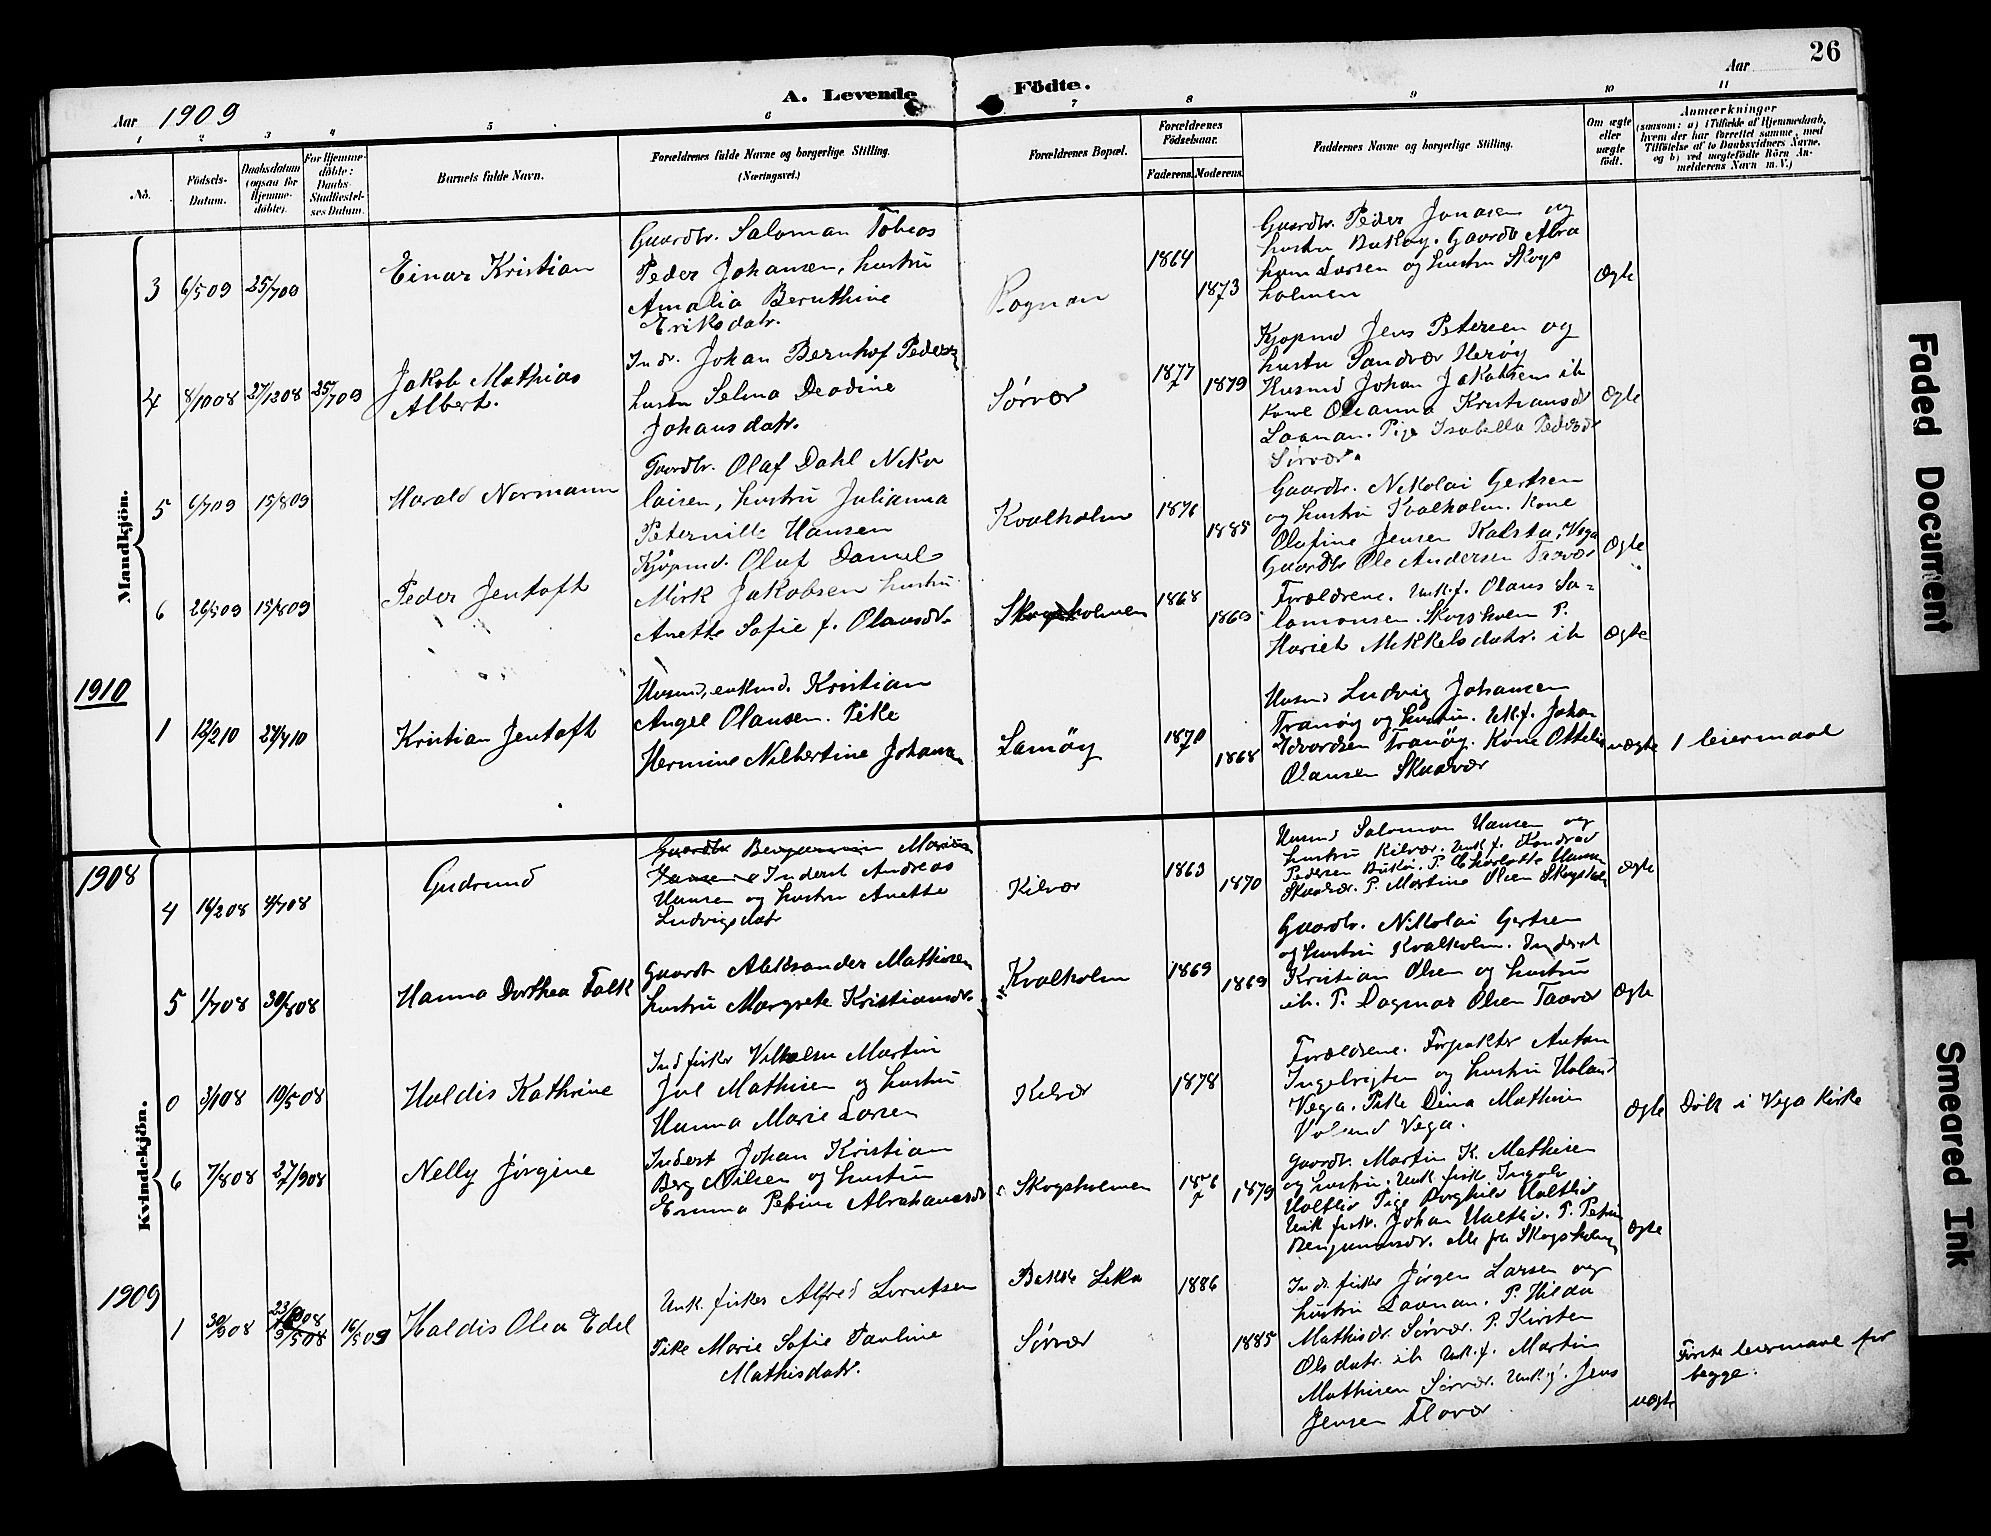 26
Aar 1909
A. Levende Födte.
Aar
1 2 3 4 5 6 7 8 9 10 11
No.
Födsels-
Datum.
Daabsdatum
(ogsaa for
Hjemme-
döbte).
For Hjemme-
döbte:
Daabs-
Stadfæstel-
ses Datum.
Barnets fulde Navn.
Forældrenes fulde Navne og borgerlige Stilling.
(Næringsvei.)
Forældrenes Bopæl.
Forældrenes
Födselsaar.
Faderens. Moderens.
Faddernes Navne og borgerlige Stilling.
Om ægte
eller
uægte
födt.
Anmærkninger
(saasom: a) i Tilfælde af Hjemmedaab,
hvem der har forrettet samme, med
Tilföielse af to Daabsvidners Navne,
og b) ved uægtefödte Börn An-
melderens Navn m. V.)
Mandkjön.
3 6/5 09 25/7 09
Einar Kristian
Gaardbr. Saloman Tobias
Peder Johansen, hustru
Amalia Beruthine
Eriksdatr.
Rognan
1864
1873
Gaardbr. Peder Jonasen og
hustru Buköy. Gaardb Abra
ham Larsen og hustru Skogs
holmen
Ægte
4 8/10 08 27/12 08 25/7 09
Jakob Mathias
Albert.
Indr. Johan Bernhof Peders
hustru Selma Deodine
Johansdatr.
Sørvær
1877
1879
Kjøpmd Jens Petersen og
hustru Sandvær Herøy
Husmd Johan Jakobsen ib
Kone Oleanna Kristiansdr
Laanan. Pige Isabella Pedersdr
Sørvær.
Ægte
5 6/7 09 15/8 09
Harald Normann
Gaardbr. Olaf Dahl Niko
laisen, hustru Julianna
Peternille Hansen
Kvalholm
1876
1885
Gaardbr. Nikolai Gertsen
og hustru Kvalholm. Kone
Olufine Jensen Kalsta, Vega
Gaardbr Ole Andersen Taavær
Ægte
6 26/5 09 15/8 09
Peder Jentoft
Kjøpmd. Olaf Daniel
Mörk Jakobsen hustru
Anette Sofie f. Olausdr.
Skogsholmen
1868
1869
Forældrene. Unk.f. Olaus Sa-
lamonsen. Skogsholm P.
Harieh Mikkelsdatr. ib
Ægte
1910
1 12/2 10 24/4 10
Kristian Jentoft
Husmd, enkmd. Kristian
Angel Olausen. Pike
Hermine Nilbertine Johansn
Lamøy
1870
1868
Husmd Ludvig Johansen
Tranöy og hustru. Uk.f. Johan
Edvardsen Tranöy. Kone Ottelia
Olausen Skaavær
uægte
1 leiermaal
Kvindekjön.
1908
4 16/2 08 4/7 08
Gudrund
Gaardbr Benjamin Marius
Hansen Inderst Andreas
Hansen og hustru Anette
Ludvigsdatr
Kilvær
1863
1870
Husmd Salomon Hansen og
hustru Kilvær. Unk f. Kondrad
Pedersen Buköi. P. Charlotte Hansen
Skaavær. P. Martine Olsen Skogsholm
Ægte
5 1/7 08 30/8 08
Hanna Dorthea Falk
Gaardb Aleksander Mathisen
hustru Margrete Kristiansdr.
Kvalholm
1869
1869
Gaardbr. Nikolai Gertsen
og hustru Kvalholm. Inderst
Kristian Olsen og hustru
ib. P. Dagmar Olsen Taavær
Ægte
0 3/1 08 10/5 08
Haldis Kathrine
Ind fisker Vilhelm Martin
Juul Mathisen og hustru
Hanna Marie Larsen
Kilvær
1878
Forældrene. Forpakter Anton
Ingebrigtsen og hustru Holand
Vega. Pike Dina Mathisen
Voland Vega.
Ægte
Døbt i Vega Kirke
6 7/8 08 27/9 08
Nelly Jørgine
Inderst Johan Kristian
Berg Nilsen og hustru
Emma Petrine Abrahamsdr
Skogsholmen
1876
1879
Gaardb. Martin K. Mathisen
og hustru. Unk. fisk. Ingolv
Valtlid Pige Borghild Valtlid
Unk fisk. Johan Valtlid. P. Petrine
Benjaminsdr. alle fra Skogsholmen
Ægte
1909
1 30/9 08 16/5 09
Haldis Olea Edel
Unk. fisker Alfred Lorntsen
Pike Marie Sofie Pauline
Mathisdatr.
Leka
Sørvær
1886
1885
Ind. fisker Jørgen Larsen og
hustru Laanan. P. Hilda
Mathisdr. Sørvær. P. Kirsten
Olsdatr. ib. Unk. f. Martin
Mathisen Sørvær. Unk. f. Jens
Jensen Flovær
uægte
Første leiermaal for
begge.
Faded Document
Smeared Ink